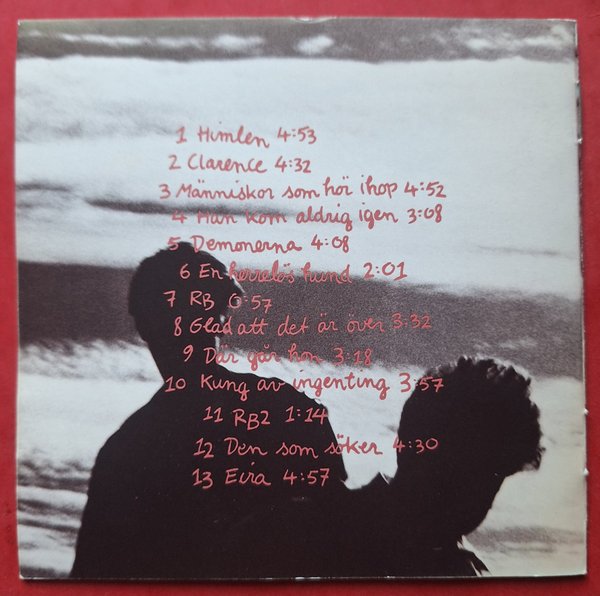 1 Himlen 4:53
2 Clarence 4:32
3 Människor som hör ihop 4:52
4 Han kom aldrig igen 3:08
5 Demonerna 4:08
6 En herrelös hund 2:01
7 RB 0:57
8 Glad att det är över 3:32
9 Där går hon 3:18
10 Kung av ingenting 3:57
11 RB2 1:14
12 Den som söker 4:30
13 Eira 4:57